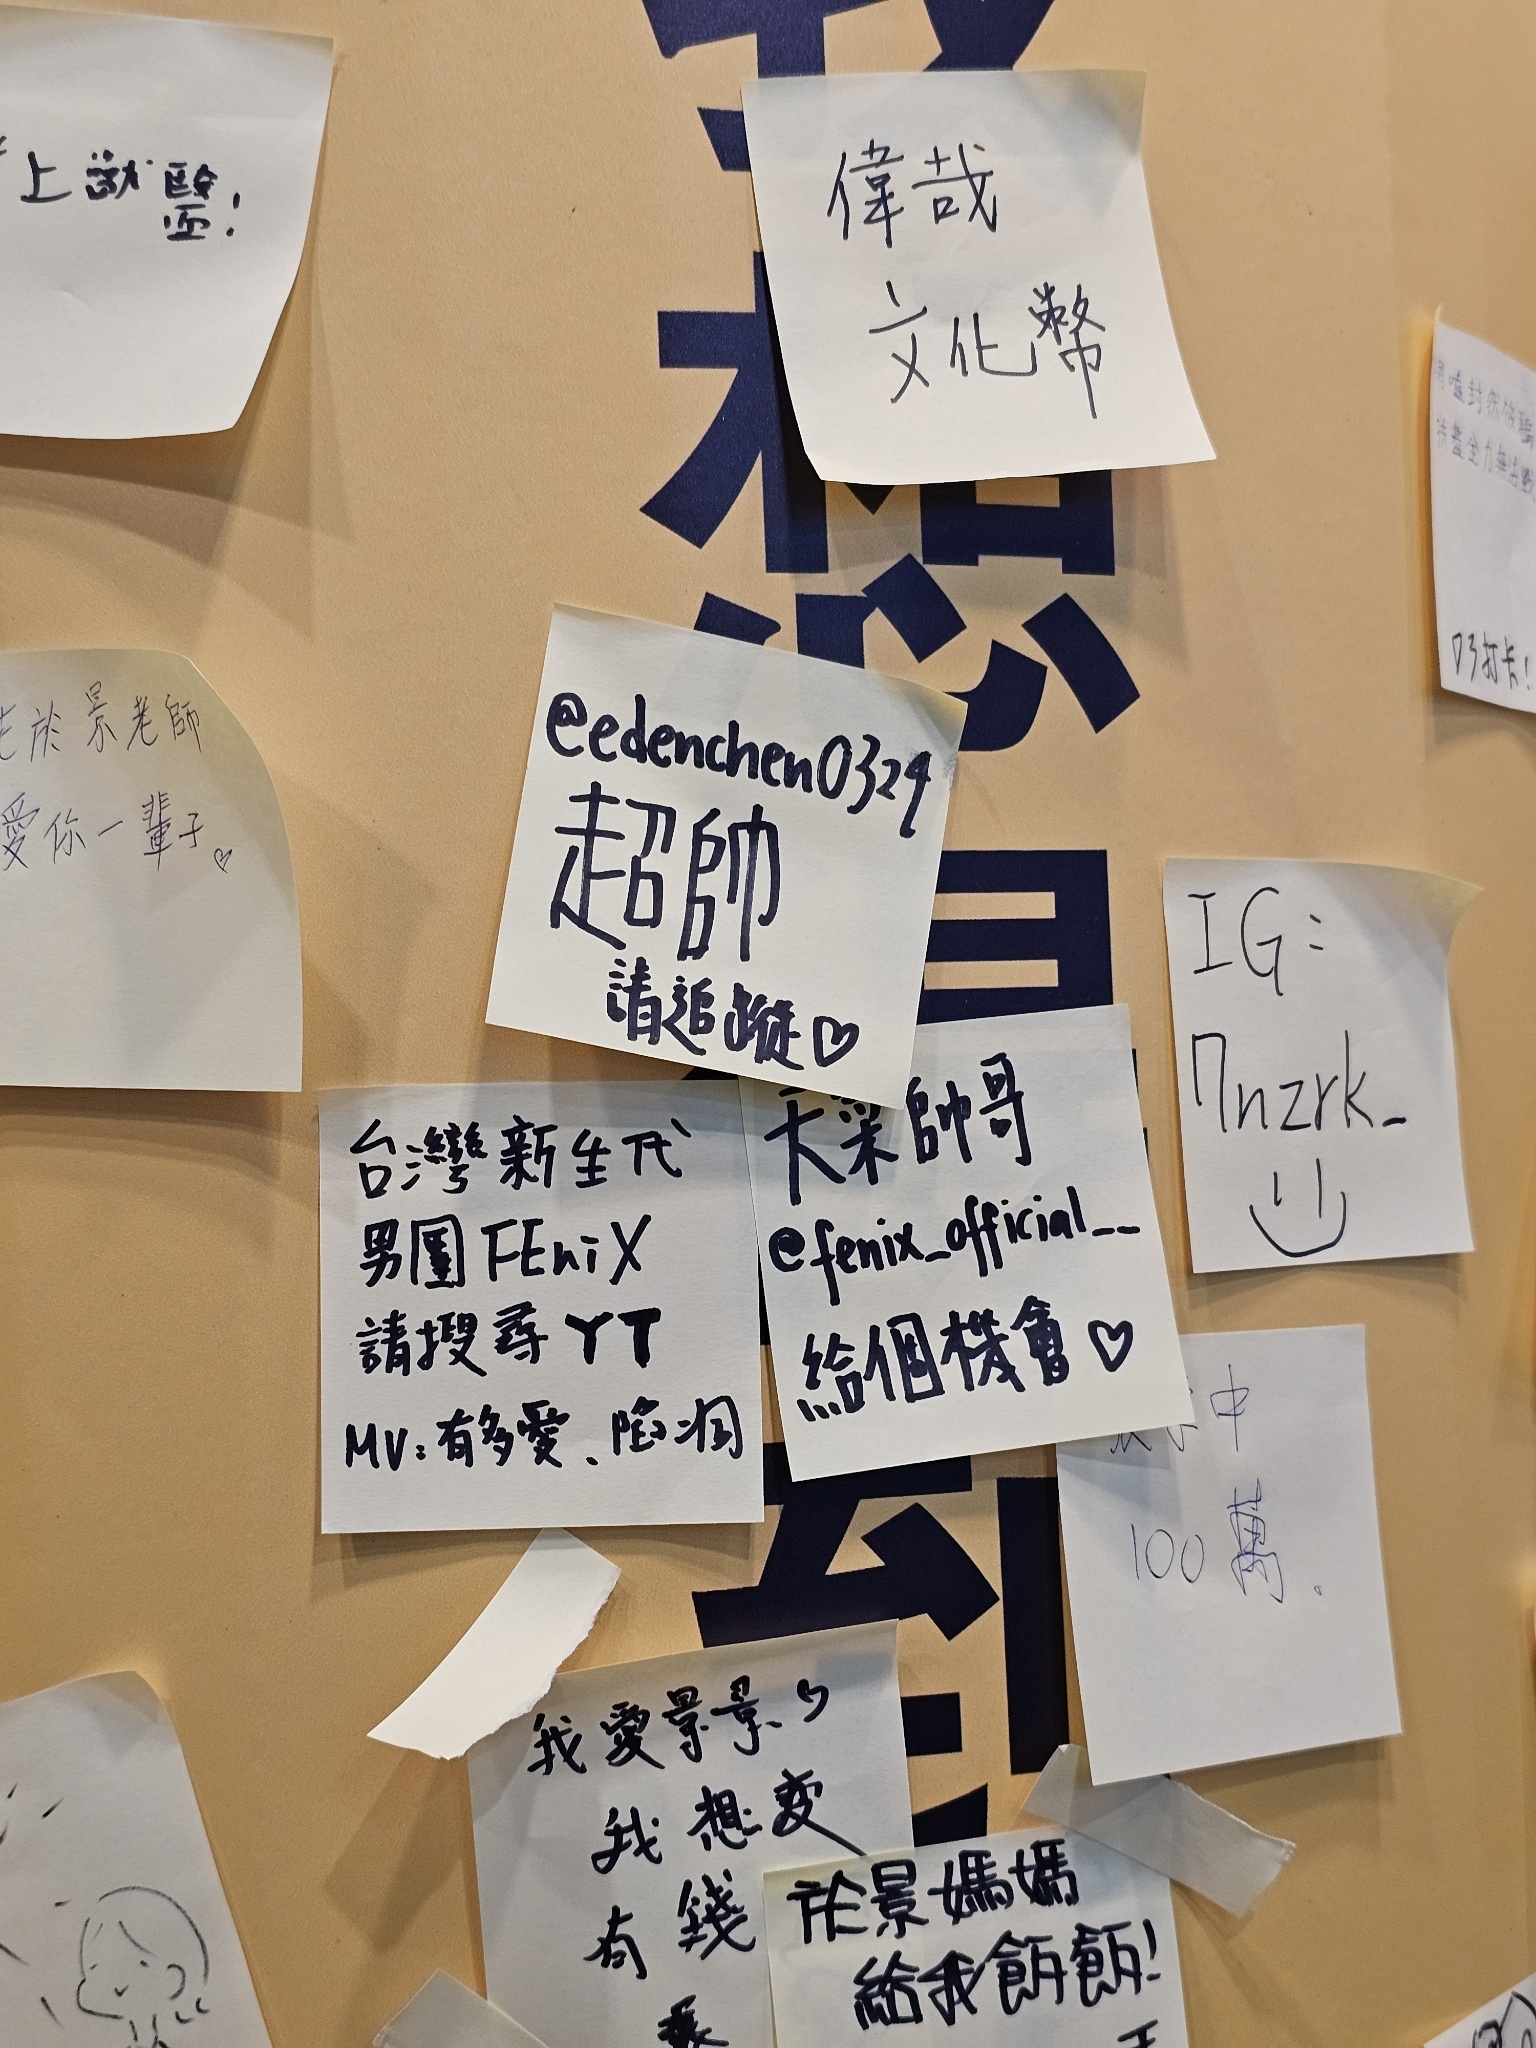 上獸醫!
偉哉
文化幣
打卡!
於景老師
愛你一輩子♡
@edenchen0324
超帥
請追蹤♡
IG:
7nzrk_
台灣新生代
男團FEniX
請搜尋YT
MV:有多愛、陷洞
天菜帥哥
@fenix_official__
給個機會♡
中
100萬.
我愛景景、♡
我想變
有錢
於景媽媽
給我飾飾!